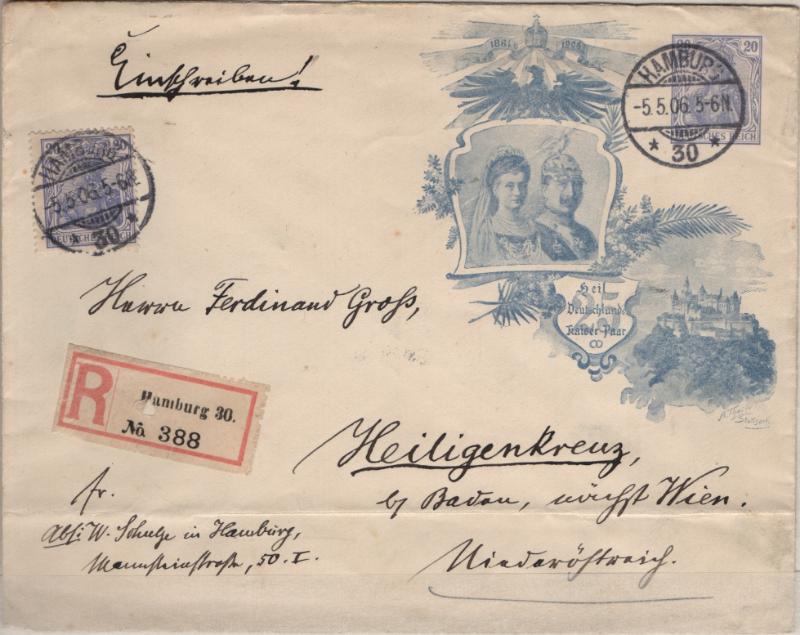 Einschreiben!
1881 1906
20 20
DEUTSCHES REICH
HAMBURG
-5.5.06.5-6N.
* 30 *
20 20
DEUTSCHES REICH
HAMBURG
-5.5.06.5-6N.
* 30 *
Heil
25
Deutschlands
Kaiser-Paar
Stuttgart
Herrn Ferdinand Groß,
R
Hamburg 30.
No 388
Heiligenkreuz,
b/ Baden, nächst Wien.
Niederöstreich.
fr.
Abs: W. Schulze in Hamburg,
Mannsteinstraße, 50. I.